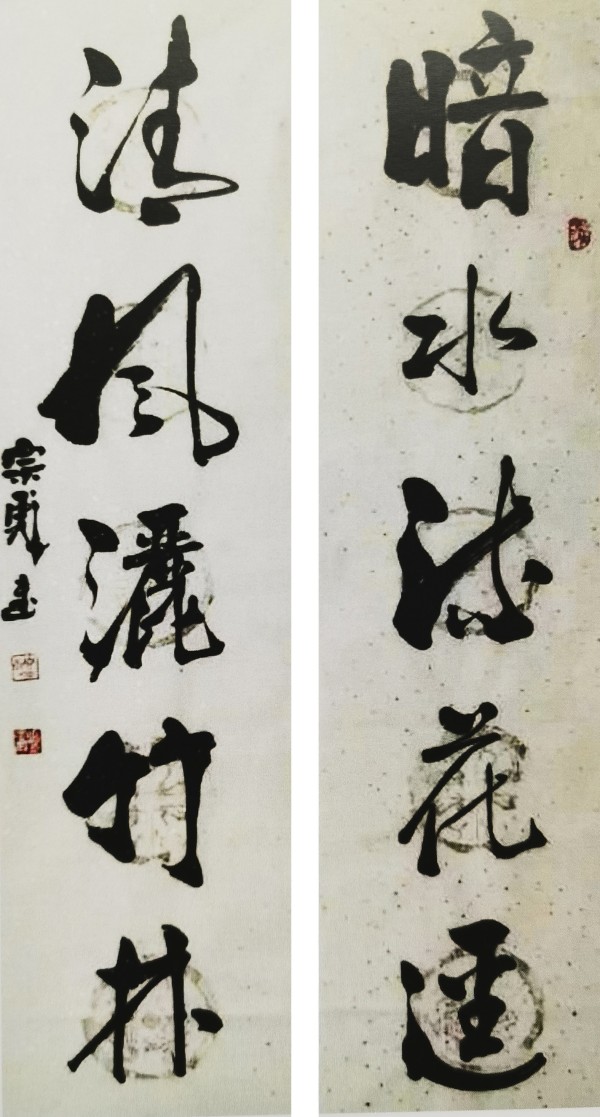 暗水流花逕
清風灑竹林
宗 書